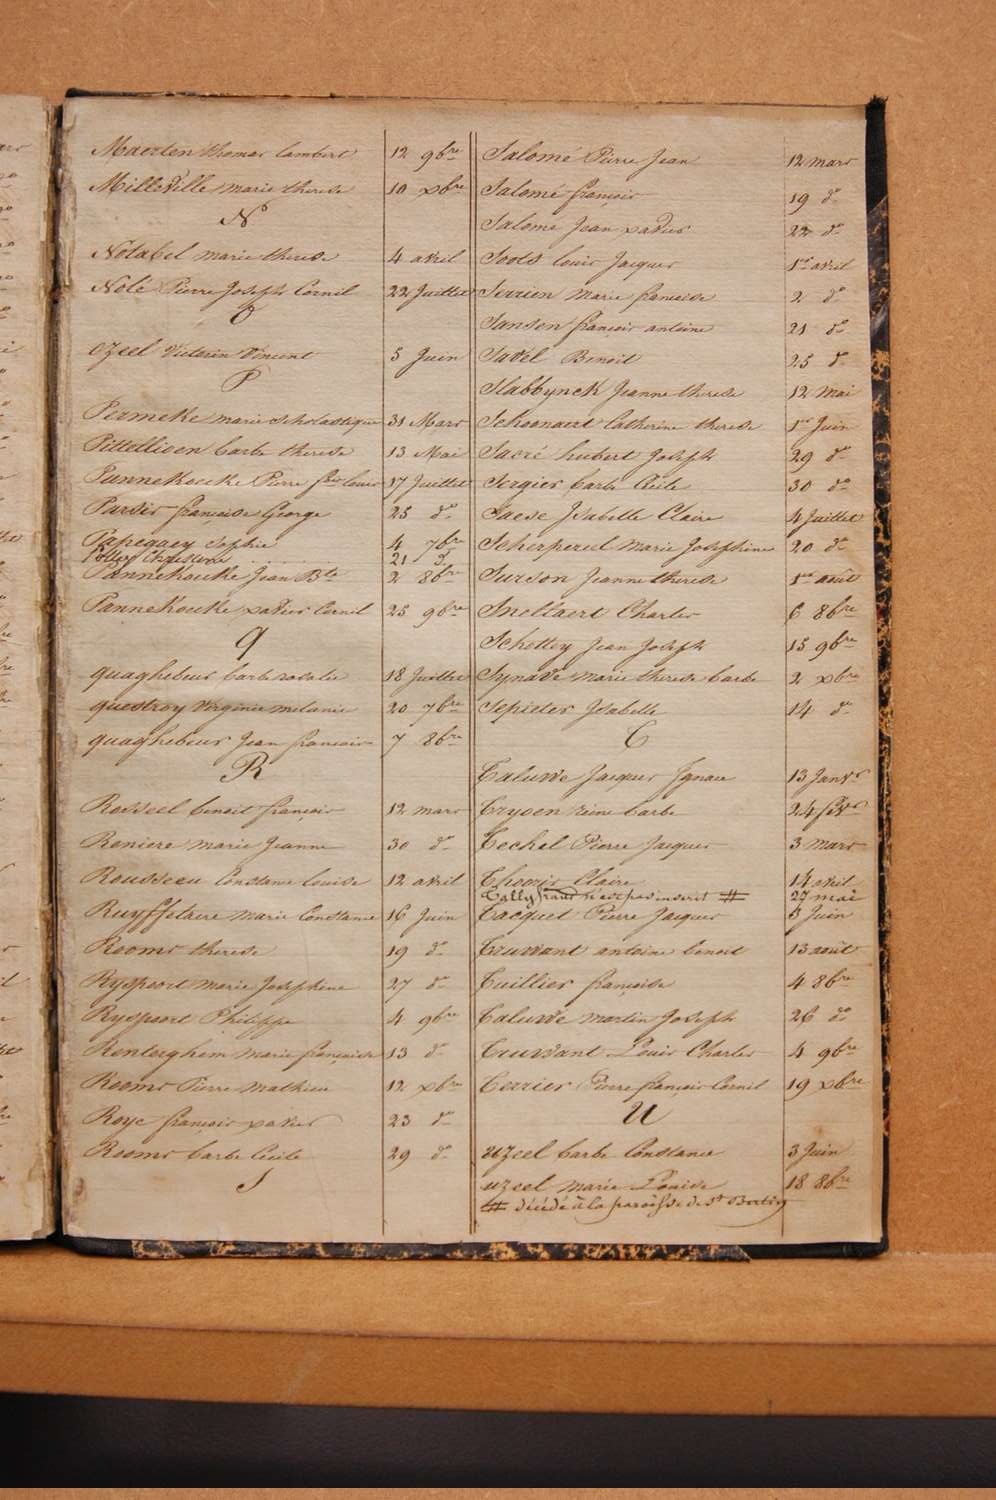 Maerten thomas lambert 12 9bre
Milleville marie therese 10 xbre
N
Notabel marie therese 4 avril
Nolé Pierre Joseph Cornil 22 Juillet
O
ozeel Victorin Vincent 5 Juin
P
Permeke marie scholastique 31 Mars
Pittellioen barbe therese 13 Mai
Pannekoucke Pierre fois louis 17 Juillet
Parsis françoise George 25 do
Papegaey Sophie 4 7bre
Pottey Christine 21 do
Pannekoucke Jean Bte 2 8bre
Pannekoucke xavier Cornil 25 9bre
q
quaghebeur barbe rosalie 18 Juillet
questroy Virginie melanie 20 7bre
quaghebeur Jean françois 7 8bre
R
Rosseel benoit françois 12 mars
Reniere marie Jeanne 30 do
Rousseeu Constance louise 12 avril
Ruyffelaire Marie Constance 16 Juin
Rooms therese 19 do
Ryspeert marie Josephine 27 do
Ryspoort Philippe 4 9bre
Renterghem marie françoise 13 do
Rooms Pierre mathieu 12 xbre
Roye françois xavier 23 do
Rooms barbe Cécile 29 do
S
Salomé Pierre Jean 12 mars
Salomé françois 19 do
Salomé Jean xavier 22 do
Soots louis Jacques 1er avril
Serrien marie françoise 2 do
Sansen françois antoine 21 do
Savel Benoit 25 do
Slabbynck Jeanne therese 12 mai
Schoonaert Catherine therese 1er Juin
Sacré hubert Joseph 29 do
Sergier barbe Cécile 30 do
Saese Isabelle Claire 4 Juillet
Scherpereel Marie Josephine 20 do
Surson Jeanne therese 1er août
Snellaert Charles 6 8bre
Schottey Jean Joseph 15 9bre
Synave marie therese barbe 2 xbre
Sepieter Isabelle 14 do
T
Taluwe Jacques Ignace 13 Janvr
Tryoen reine barbe 24 fevr
Techel Pierre Jacques 3 mars
Thooris Claire 14 avril
Tally frans n'est pas inscrit # 27 mai
Tacquet Pierre Jacques 5 Juin
Truwant antoine benoit 13 août
Tuillier françoise 4 8bre
Taluwe martin Joseph 26 do
Truwant Louis Charles 4 9bre
Terrier Pierre françois Cornil 19 xbre
U
uzeel barbe Constance 3 Juin
uzeel marie Louise 18 8bre
# décédé à la paroisse de St Bertin